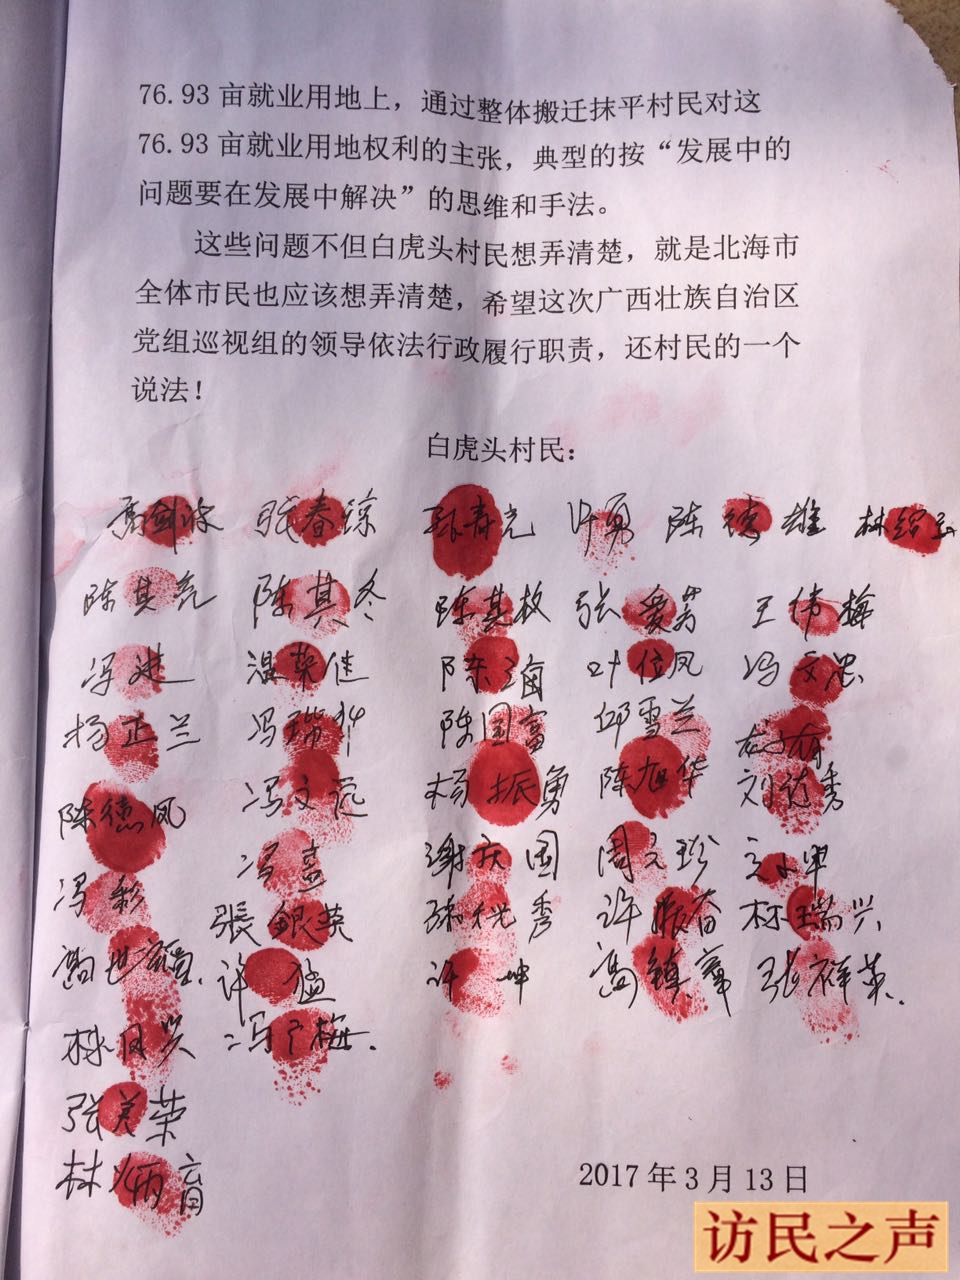 76.93亩就业用地上，通过整体搬迁抹平村民对这
76.93亩就业用地权利的主张，典型的按“发展中的
问题要在发展中解决”的思维和手法。
这些问题不但白虎头村民想弄清楚，就是北海市
全体市民也应该想弄清楚，希望这次广西壮族自治区
党组巡视组的领导依法行政履行职责，还村民的一个
说法！
白虎头村民：
张春琼 许勇 陈德雄
陈其亮 陈其冬 陈其枚 张爱芳 王伟梅
冯进 陈海 叶位凤 冯文忠
杨正兰 陈国富 邱雪兰
陈德凤 杨振勇 陈旭华
冯彩 谢庆国
張銀英 许振奋 林瑞兴
许猛 许坤 张祥英
冯广梅
张美荣
林炳育
2017年3月13日
访民之声